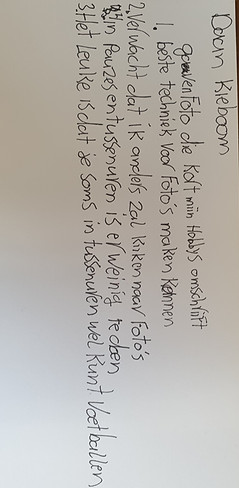 Daan Kleboom
gaaven foto die kdt mijn Hobbys omschrijft
1. beste techniek voor foto's maken kennen
2. Verwacht dat ik anders zal kijken naar foto's
In Pauzes en tussenuren is er weinig te doen
3. Het Leuke is dat je soms in tussenuren wel kunt Voetballen